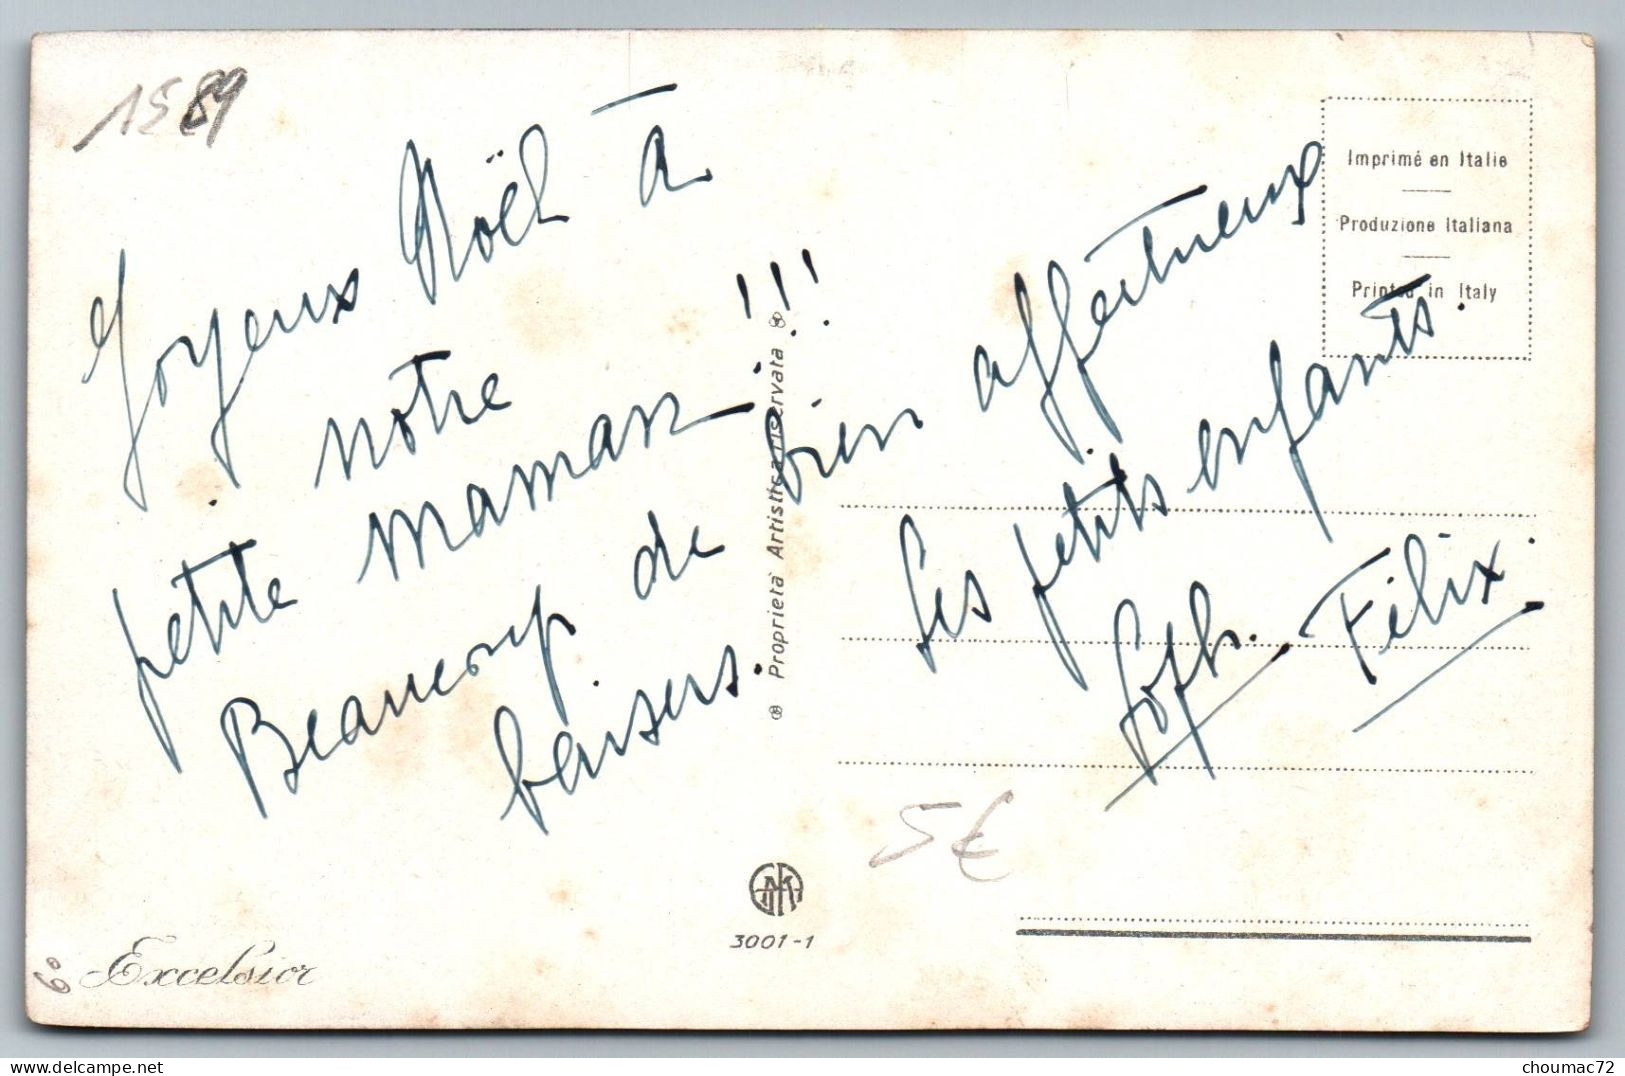 1589
Joyeux Noël à
notre
petite maman !!!
Beaucoup de
baisers.
bien affectueux
Les petits enfants.
Soph. Félix.
Imprimé en Italie
Produzione Italiana
Printed in Italy
Proprietà Artistica riservata
5€
3001-1
6°
Excelsior
choumac72